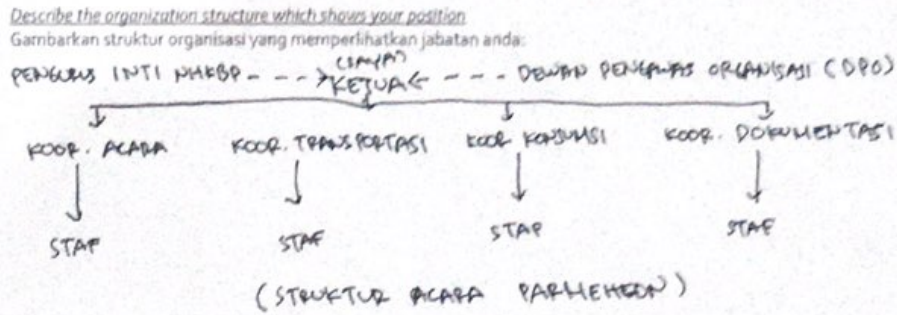 Describe the organization structure which shows your position
Gambarkan struktur organisasi yang memperlihatkan jabatan anda:
(SAYA)
PENGURUS INTI NHKBP - - - > KETUA < - - - - DEWAN PENGAWAS ORGANISASI (DPO)
KOOR. ACARA KOOR. TRANSPORTASI KOOR KONSUMSI KOOR. DOKUMENTASI
STAF STAF STAF STAF
(STRUKTUR ACARA PARHEHEON)